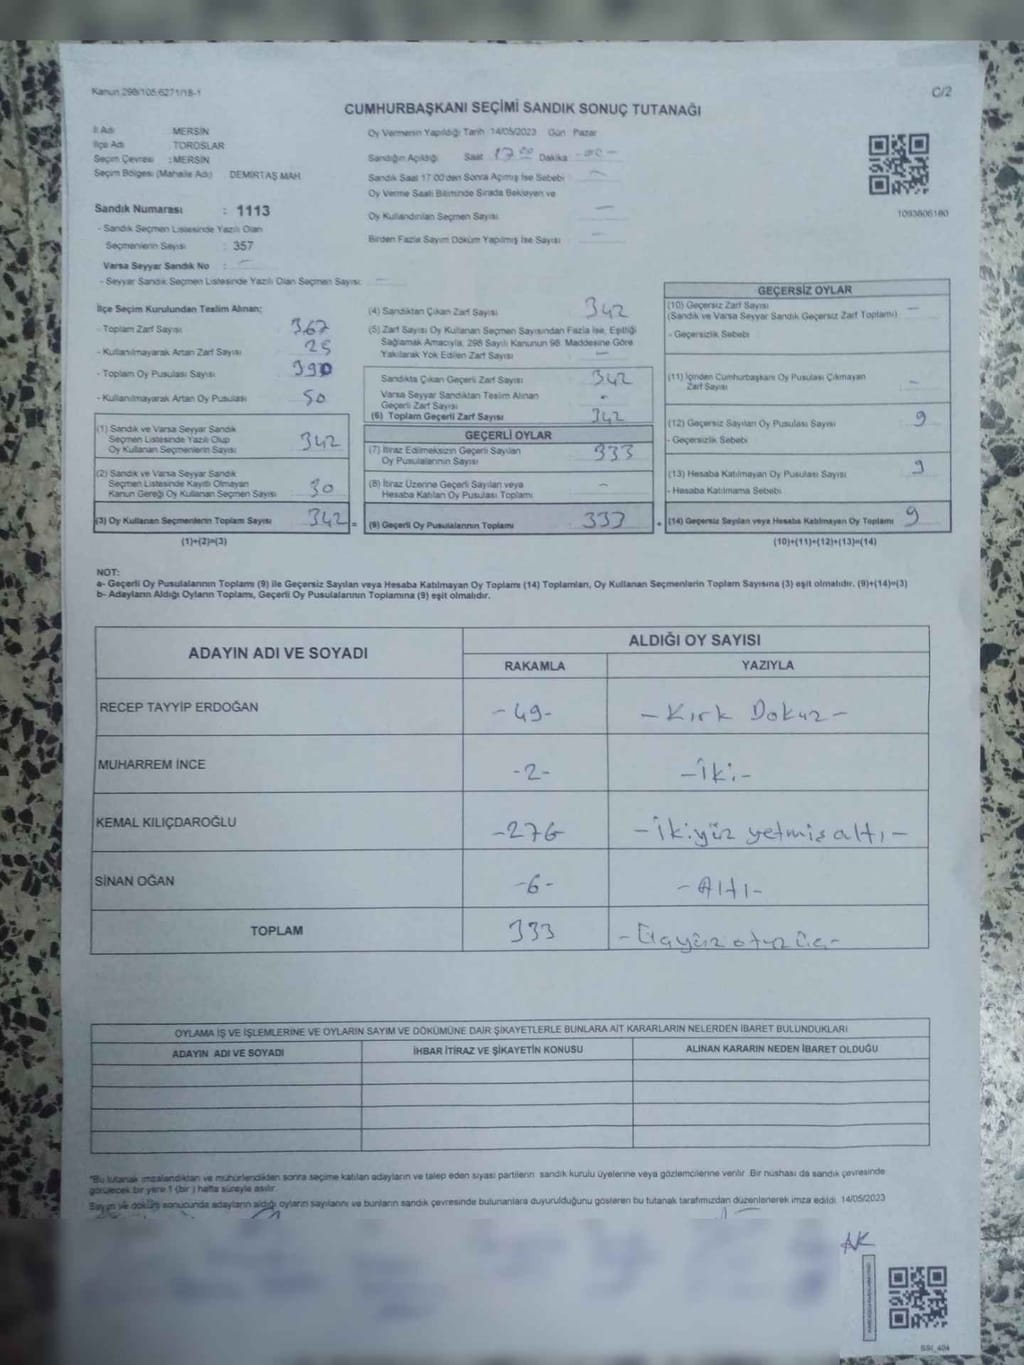 Kanun 298/105-6271/18-1
C/2
CUMHURBAŞKANI SEÇİMİ SANDIK SONUÇ TUTANAĞI
İl Adı : MERSİN
İlçe Adı : TOROSLAR
Seçim Çevresi : MERSİN
Seçim Bölgesi (Mahalle Adı) DEMİRTAŞ MAH.
Sandık Numarası : 1113
- Sandık Seçmen Listesinde Yazılı Olan
Seçmenlerin Sayısı : 357
Varsa Seyyar Sandık No : -
- Seyyar Sandık Seçmen Listesinde Yazılı Olan Seçmen Sayısı: -
Oy Vermenin Yapıldığı Tarih 14/05/2023 Gün Pazar
Sandığın Açıldığı Saat 17 00 Dakika
Sandık Saat 17:00'den Sonra Açımış İse Sebebi -
Oy Verme Saati Bitiminde Sırada Bekleyen ve
Oy Kullandırılan Seçmen Sayısı -
Birden Fazla Sayım Döküm Yapılmış İse Sayısı -
1093806180
İlçe Seçim Kurulundan Teslim Alınan:
- Toplam Zarf Sayısı 367
- Kullanılmayarak Artan Zarf Sayısı 25
- Toplam Oy Pusulası Sayısı 390
- Kullanılmayarak Artan Oy Pusulası 50
(1) Sandık ve Varsa Seyyar Sandık
Seçmen Listesinde Yazılı Olup
Oy Kullanan Seçmenlerin Sayısı 342
(2) Sandık ve Varsa Seyyar Sandık
Seçmen Listesinde Kayıtlı Olmayan
Kanun Gereği Oy Kullanan Seçmen Sayısı
(3) Oy Kullanan Seçmenlerin Toplam Sayısı 342 =
(1)+(2)=(3)
(4) Sandıktan Çıkan Zarf Sayısı 342
(5) Zarf Sayısı Oy Kullanan Seçmen Sayısından Fazla İse, Eşitliği
Sağlamak Amacıyla, 298 Sayılı Kanunun 98. Maddesine Göre
Yakılarak Yok Edilen Zarf Sayısı -
Sandıkta Çıkan Geçerli Zarf Sayısı 342
Varsa Seyyar Sandıktan Teslim Alınan
Geçerli Zarf Sayısı -
(6) Toplam Geçerli Zarf Sayısı 342
GEÇERLİ OYLAR
(7) İtiraz Edilmeksizin Geçerli Sayılan
Oy Pusulalarının Sayısı 333
(8) İtiraz Üzerine Geçerli Sayılan veya
Hesaba Katılan Oy Pusulası Toplamı -
(9) Geçerli Oy Pusulalarının Toplamı 333 +
GEÇERSİZ OYLAR
(10) Geçersiz Zarf Sayısı
(Sandık ve Varsa Seyyar Sandık Geçersiz Zarf Toplamı) -
- Geçersizlik Sebebi
(11) İçinden Cumhurbaşkanı Oy Pusulası Çıkmayan
Zarf Sayısı -
(12) Geçersiz Sayılan Oy Pusulası Sayısı 9
- Geçersizlik Sebebi
(13) Hesaba Katılmayan Oy Pusulası Sayısı 9
- Hesaba Katılmama Sebebi
(14) Geçersiz Sayılan veya Hesaba Katılmayan Oy Toplamı 9
(10)+(11)+(12)+(13)=(14)
NOT:
a- Geçerli Oy Pusulalarının Toplamı (9) ile Geçersiz Sayılan veya Hesaba Katılmayan Oy Toplamı (14) Toplamları, Oy Kullanan Seçmenlerin Toplam Sayısına (3) eşit olmalıdır. (9)+(14)=(3)
b- Adayların Aldığı Oyların Toplamı, Geçerli Oy Pusulalarının Toplamına (9) eşit olmalıdır.
ADAYIN ADI VE SOYADI
ALDIĞI OY SAYISI
RAKAMLA YAZIYLA
RECEP TAYYİP ERDOĞAN -49- -Kırk Dokuz-
MUHARREM İNCE -2- -İki-
KEMAL KILIÇDAROĞLU -276- -İkiyüz yetmiş altı-
SİNAN OĞAN -6- -Altı-
TOPLAM 333 -Üçyüz otuz üç-
OYLAMA İŞ VE İŞLEMLERİNE VE OYLARIN SAYIM VE DÖKÜMÜNE DAİR ŞİKAYETLERLE BUNLARA AİT KARARLARIN NELERDEN İBARET BULUNDUKLARI
ADAYIN ADI VE SOYADI İHBAR İTİRAZ VE ŞİKAYETİN KONUSU ALINAN KARARIN NEDEN İBARET OLDUĞU
*Bu tutanak imzalandıktan ve mühürlendikten sonra seçime katılan adayların ve talep eden siyasi partilerin sandık kurulu üyelerine veya gözlemcilerine verilir. Bir nüshası da sandık çevresinde
görülecek bir yere 1 (bir) hafta süreyle asılır.
Sayım ve döküm sonucunda adayların aldığı oyların sayılarını ve bunların sandık çevresinde bulunanlara duyurulduğunu gösteren bu tutanak tarafımızdan düzenlenerek imza edildi. 14/05/2023
AK
SSİ_404